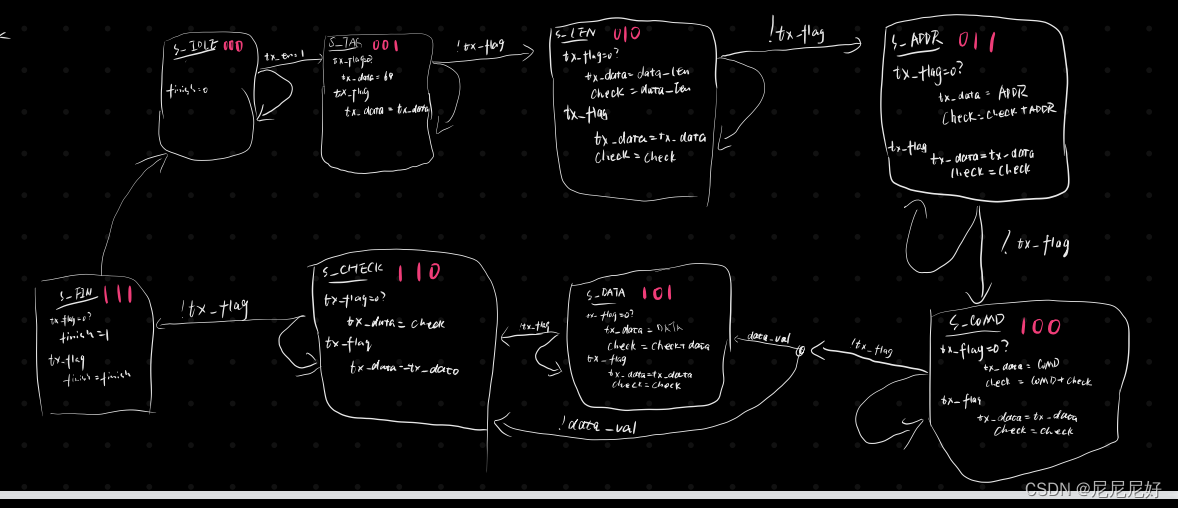 S_IDLE 000
finish=0
tx_en=1
S_TAG 001
tx_flag=0?
tx_data=68
tx_flag
tx_data=tx_data
!tx_flag
S_LEN 010
tx_flag=0?
tx_data=data_len
check=data_len
tx_flag
tx_data=tx_data
check=check
!tx_flag
S_ADDR 011
tx_flag=0?
tx_data=ADDR
check=check+ADDR
tx_flag
tx_data=tx_data
check=check
!tx_flag
S_COMD 100
tx_flag=0?
tx_data=COMD
check=COMD+check
tx_flag
tx_data=tx_data
check=check
!tx_flag
data_val
!data_val
S_DATA 101
tx_flag=0?
tx_data=DATA
check=check+data
tx_flag
tx_data=tx_data
check=check
!tx_flag
S_CHECK 110
tx_flag=0?
tx_data=check
tx_flag
tx_data=tx_data
!tx_flag
S_FIN 111
tx_flag=0?
finish=1
tx_flag
finish=finish
CSDN @尼尼尼好